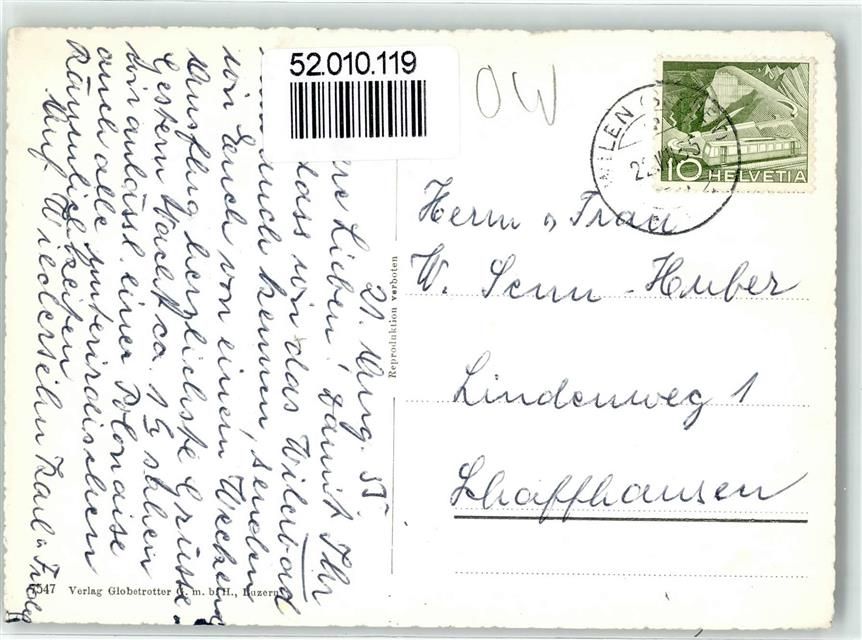 52.010.119
OW
10 HELVETIA
WILEN
Herrn u Frau
W. Senn-Huber
Lindenweg 1
Schaffhausen
Reproduktion verboten
21. Aug. 55
Lieben! Damit Ihr
dass wir das Wilerbad
auch kennen, senden
wir Euch von einem Weekend
Ausflug herzlichste Grüsse.
Gestern Nacht ca. 1½ sahen
wir anlässl. einer Polonaise
auch alle unterirdischen
Räumlichkeiten
Auf Wiedersehn Karl u
7547 Verlag Globetrotter G. m. b. H., Luzern